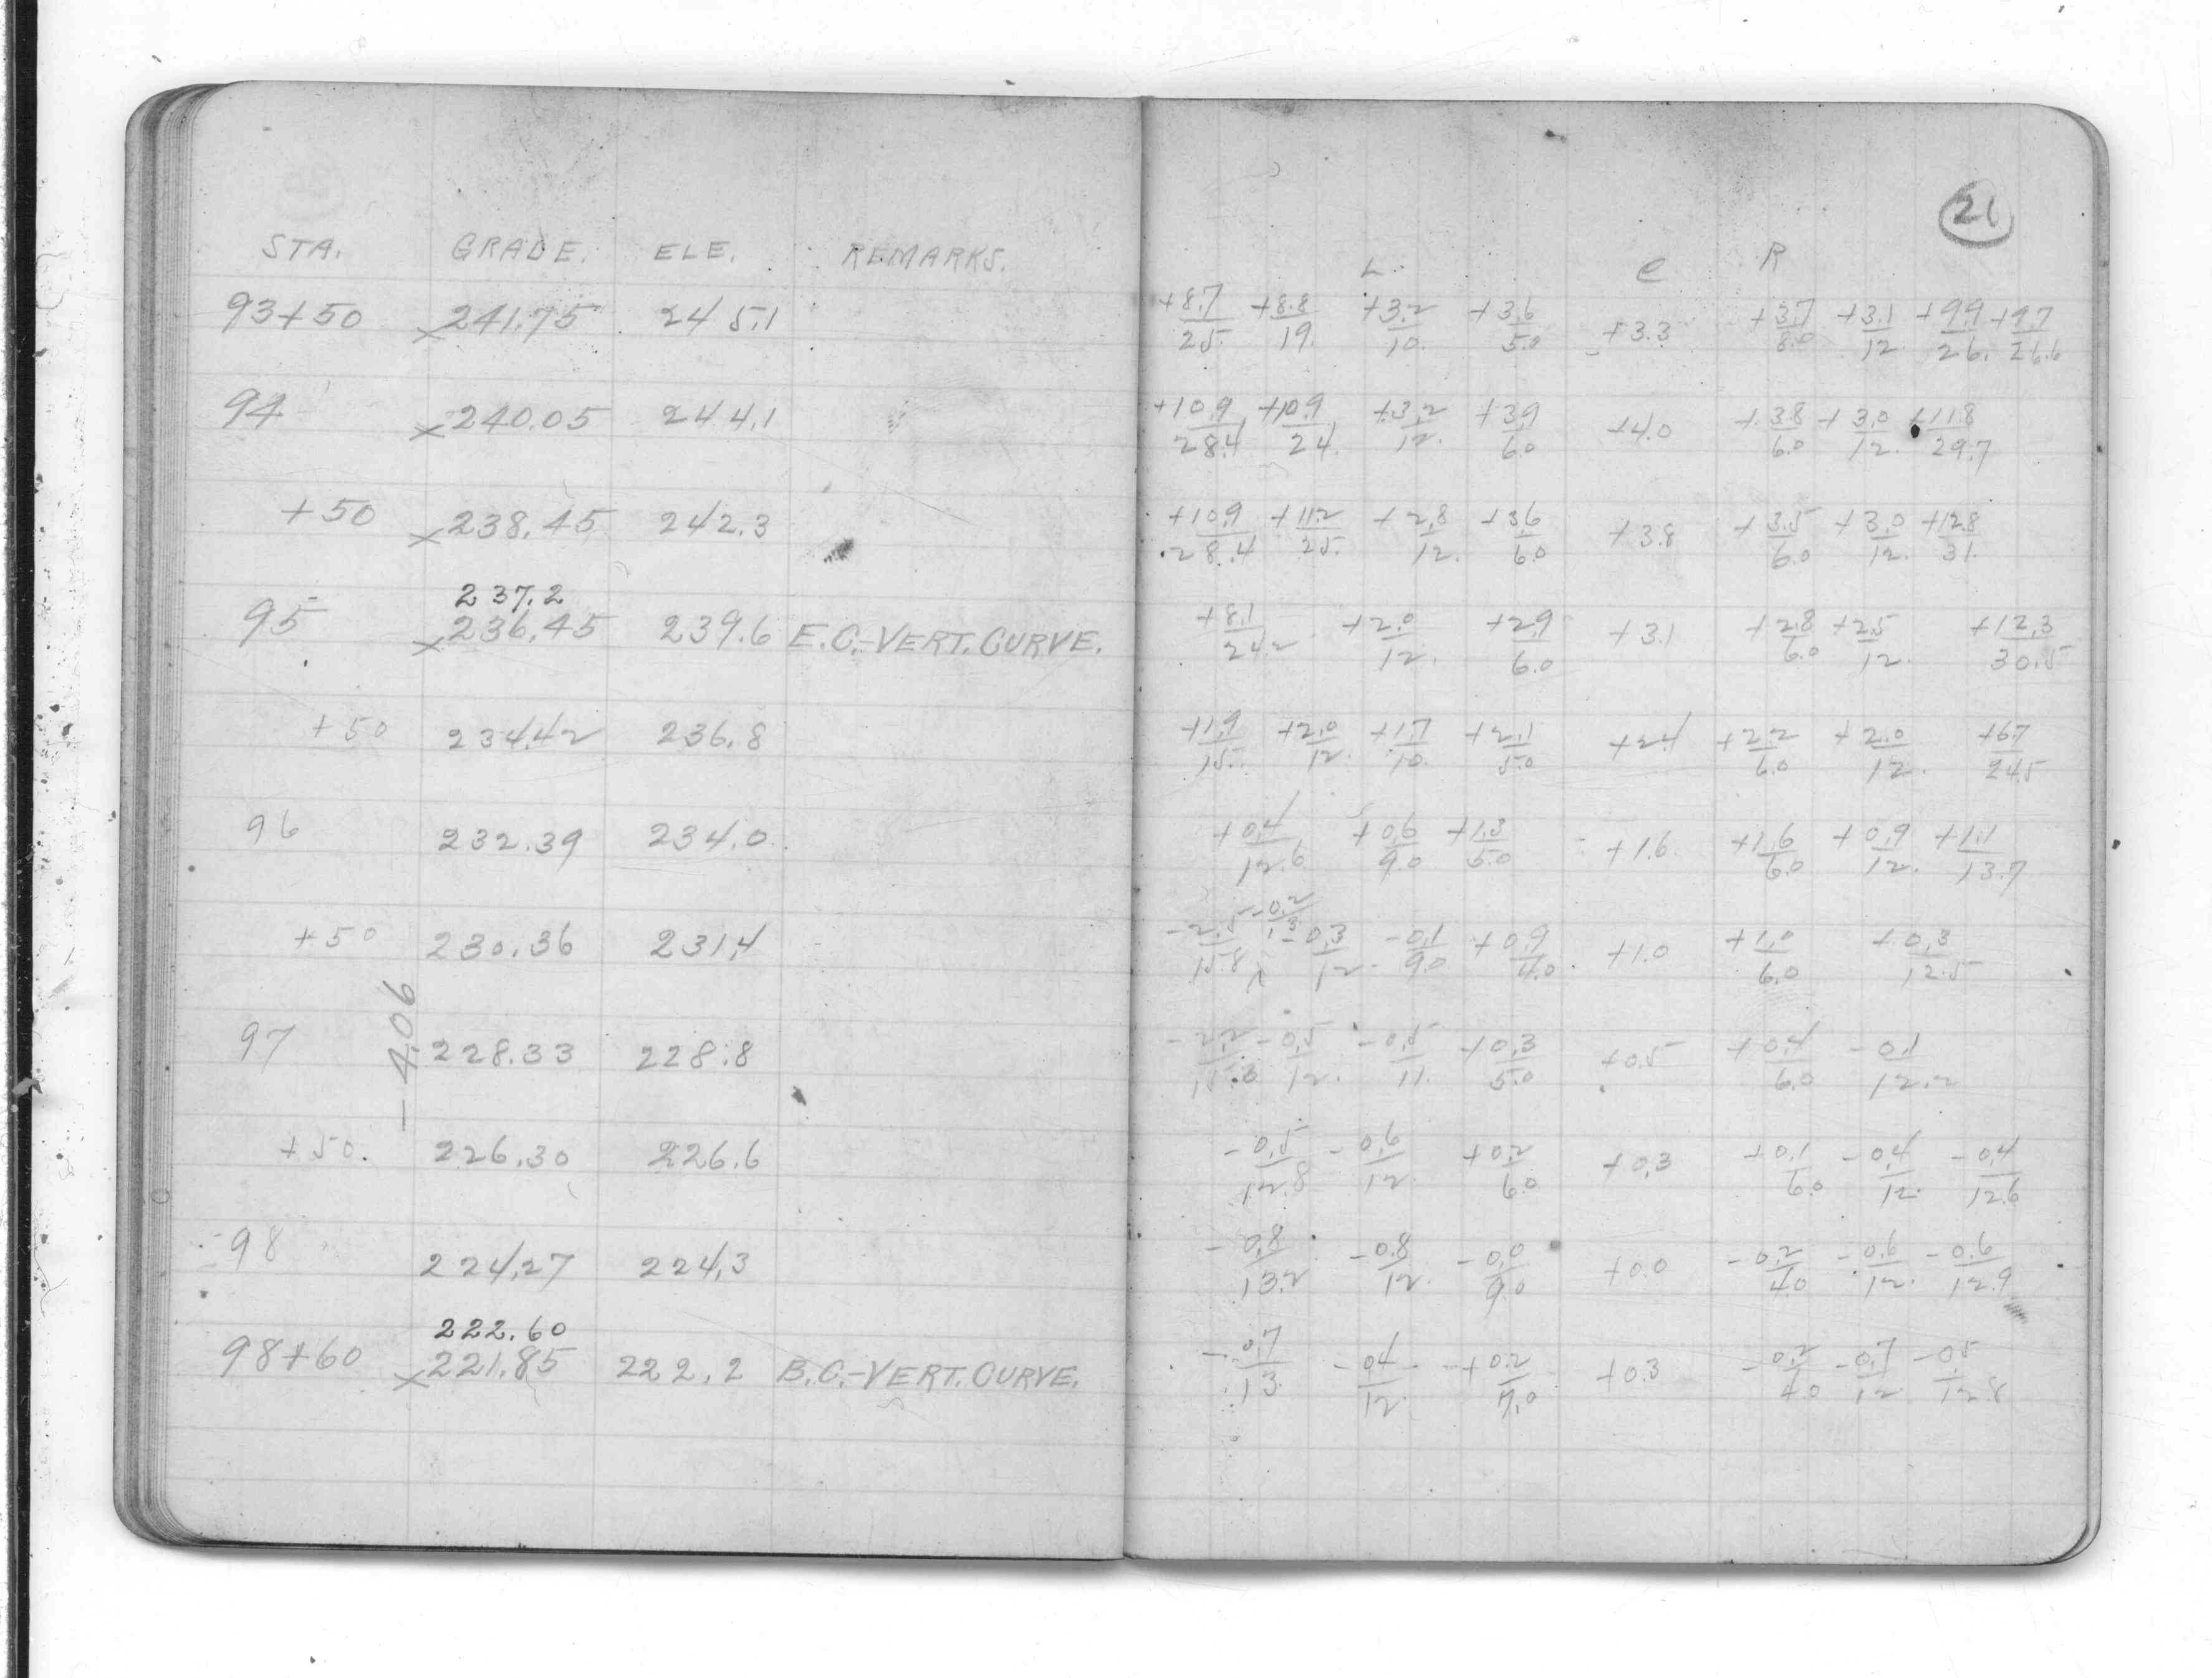 21
STA. GRADE. ELE. REMARKS. L. C R
93+50 ×241.75 245.1 +8.7/25. +8.8/19. +3.2/10. +3.6/5.0 +3.3 +3.7/8.0 +3.1/12 +9.9/26. +9.7/26.6
94 ×240.05 244.1 +10.9/28.4 +10.9/24. +3.2/12. +3.9/6.0 +4.0 +3.8/6.0 +3.0/12. +11.8/29.7
+50 ×238.45 242.3 +10.9/28.4 +11.2/25. +2.8/12. +3.6/6.0 +3.8 +3.5/6.0 +3.0/12. +12.8/31.
237.2
95 ×236.45 239.6 E.C.-VERT. CURVE. +8.1/24.2 +2.0/12. +2.9/6.0 +3.1 +2.8/6.0 +2.5/12. +12.3/30.5
+50 234.42 236.8 +1.9/15. +2.0/12. +1.7/10. +2.1/5.0 +2.4 +2.2/6.0 +2.0/12. +6.7/24.5
96 232.39 234.0 +0.4/12.6 +0.6/9.0 +1.3/5.0 +1.6 +1.6/6.0 +0.9/12. +1.1/13.7
+50 230.36 231.4 -2.5/15.8 -0.2/13 -0.3/12. -0.1/9.0 +0.9/4.0 +1.0 +1.0/6.0 +0.3/12.5
-4.06
97 228.33 228.8 -2.2/15.3 -0.5/12. -0.5/11. +0.3/5.0 +0.5 +0.4/6.0 -0.1/12.2
+50. 226.30 226.6 -0.5/12.8 -0.6/12. +0.2/6.0 +0.3 +0.1/6.0 -0.4/12. -0.4/12.6
98 224.27 224.3 -0.8/13.2 -0.8/12. -0.0/9.0 +0.0 -0.2/4.0 -0.6/12. -0.6/12.9
222.60
98+60 ×221.85 222.2 B.C.-VERT. CURVE. -0.7/13. -0.4/12. +0.2/7.0 +0.3 -0.2/4.0 -0.7/12 -0.5/12.8